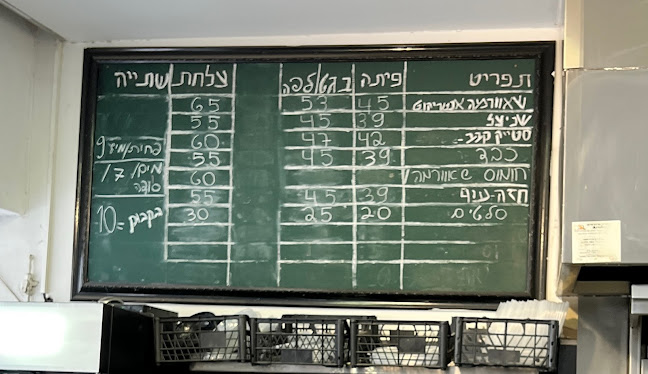 תפריט פיתה בגט/לפה צלחת שתייה
שאוורמה אנטריקוט 45 53 65
שניצל 39 45 55
סטייק קבב 42 47 60
כבד 39 45 55
חומוס שאוורמה 60
חזה-עוף 39 45 55
סלטים 20 25 30
פחית/מיץ 9
מים/ 7
סודה
בקבוק = 10